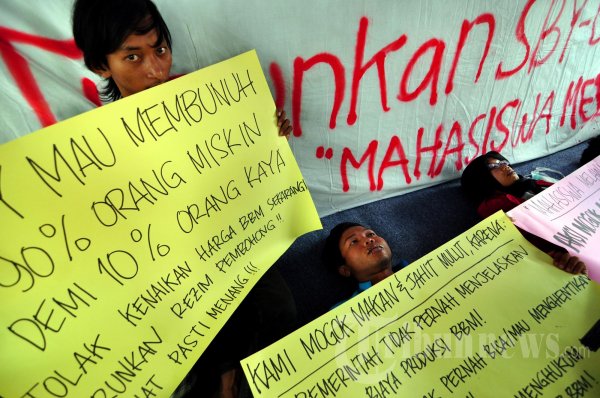 Y MAU MEMBUNUH
90% ORANG MISKIN
DEMI 10% ORANG KAYA
TOLAK KENAIKAN HARGA BBM SEKARANG!
URUNKAN REZIM PEMBOHONG!!
AT PASTI MENANG!!!
unkan SBY-
"MAHASISWA ME
KAMI MOGOK MAKAN & JAHIT MULUT, KARENA:
PEMERINTAH TIDAK PERNAH MENJELASKAN
BIAYA PRODUKSI BBM!
PERNAH MAU MENGHENTIKAN
BBM!
MENGHUKUM
BBM!
MAHASISWA MELAWAN
AKSI MOGOK
Tribunnews.com